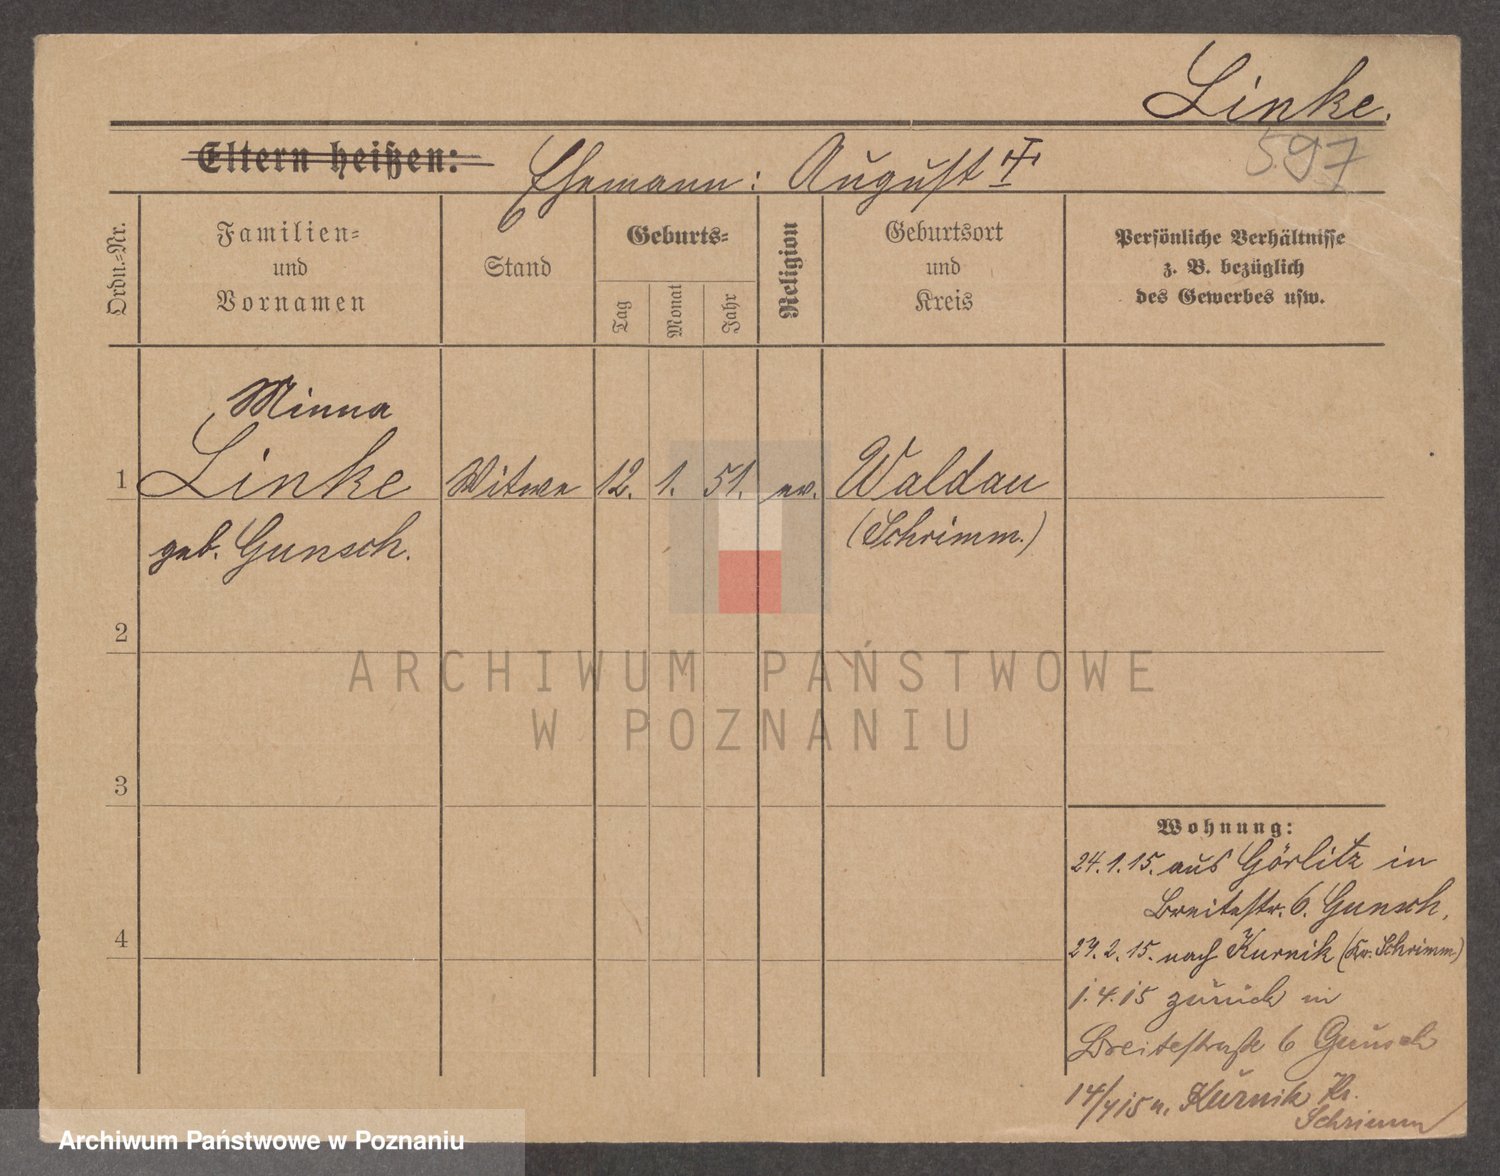 Linke.
597
Eltern heißen: Ehemann: August
Ordn.-Nr.
Familien-
und
Vornamen
Stand
Geburts-
Tag
Monat
Jahr
Religion
Geburtsort
und
Kreis
Persönliche Verhältnisse
z. B. bezüglich
des Gewerbes usw.
Minna
1 Linke Witwe 12. 1. 51. ev. Waldau
geb. Gunsch. (Schrimm.)
2
3
4
ARCHIWUM PAŃSTWOWE
W POZNANIU
Wohnung:
24.1.15. aus Görlitz in
Breitestr. 6. Gunsch.
27.2.15. nach Kurnik (Kr. Schrimm)
1.4.15 zurück in
Breitestraße 6 Gunsch
14/4 15 n. Kurnik Kr.
Schrimm
Archiwum Państwowe w Poznaniu